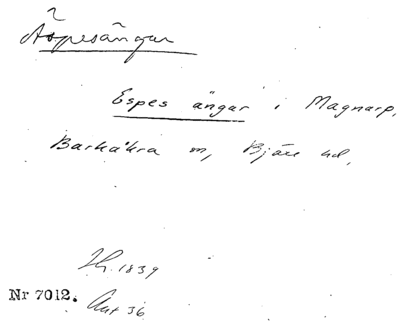 Äspesängar
Espes ängar i Magnarp,
Barkåkra sn, Bjäre hd,
1839
Nr 7012. Ant 36